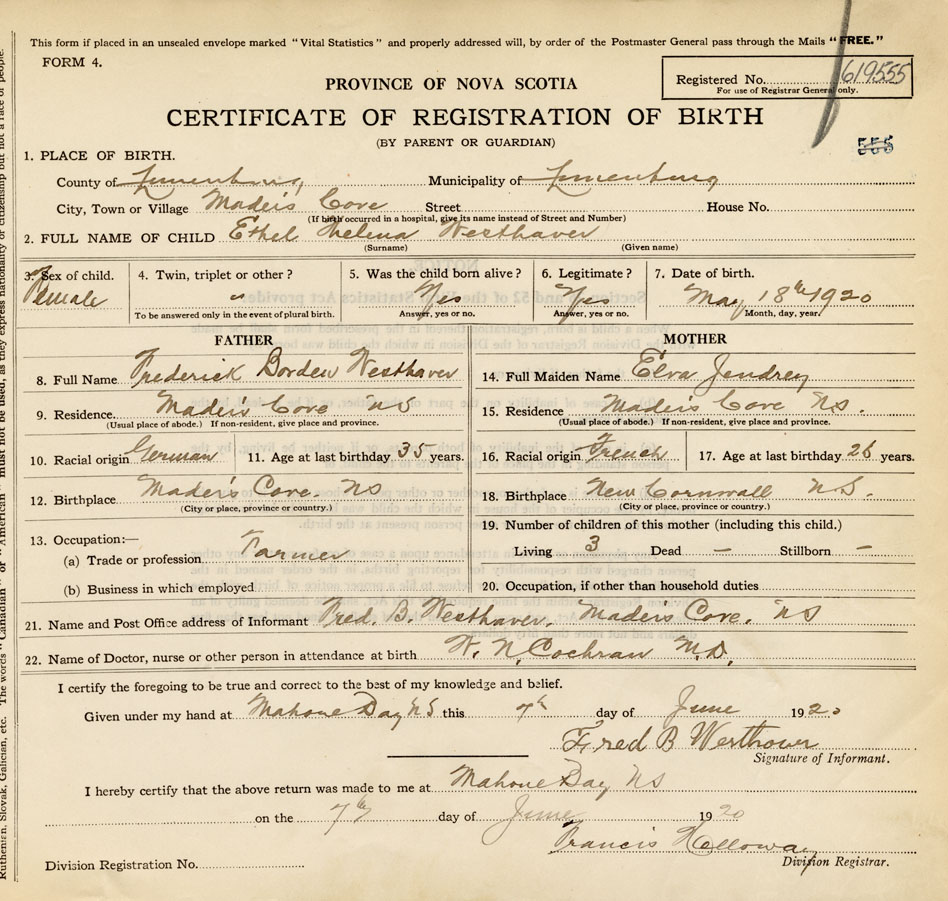 This form if placed in an unsealed envelope marked "Vital Statistics" and properly addressed will, by order of the Postmaster General pass through the Mails "FREE."
FORM 4.
Registered No. 619555
For use of Registrar General only.
PROVINCE OF NOVA SCOTIA
CERTIFICATE OF REGISTRATION OF BIRTH
(BY PARENT OR GUARDIAN)
555
1. PLACE OF BIRTH.
County of Lunenburg Municipality of Lunenburg
City, Town or Village Mader's Cove Street House No.
(If birth occurred in a hospital, give its name instead of Street and Number)
2. FULL NAME OF CHILD Ethel Thelma Westhaver
(Surname) (Given name)
3. Sex of child. 4. Twin, triplet or other? 5. Was the child born alive? 6. Legitimate? 7. Date of birth.
Female " Yes Yes May 18th 1920
To be answered only in the event of plural birth. Answer, yes or no. Answer, yes or no. Month, day, year.
FATHER
8. Full Name Frederick Borden Westhaver
9. Residence. Mader's Cove NS
(Usual place of abode.) If non-resident, give place and province.
10. Racial origin German 11. Age at last birthday 35 years.
12. Birthplace Mader's Cove. NS
(City or place, province or country.)
13. Occupation:—
(a) Trade or profession Farmer
(b) Business in which employed
MOTHER
14. Full Maiden Name Elva Jendrey
15. Residence Mader's Cove NS.
(Usual place of abode.) If non-resident, give place and province.
16. Racial origin French 17. Age at last birthday 26 years.
18. Birthplace New Cornwall N.S.
(City or place, province or country.)
19. Number of children of this mother (including this child.)
Living 3 Dead — Stillborn —
20. Occupation, if other than household duties
21. Name and Post Office address of Informant Fred. B. Westhaver. Mader's Cove. NS
22. Name of Doctor, nurse or other person in attendance at birth W. N. Cochran M.D.
I certify the foregoing to be true and correct to the best of my knowledge and belief.
Given under my hand at Mahone Bay NS this 7th day of June 1920
Fred B Westhaver
Signature of Informant.
I hereby certify that the above return was made to me at Mahone Bay NS
on the 7th day of June 1920
Francis Holloway
Division Registrar.
Division Registration No.
Ruthenian, Slovak, Galician, etc. The words "Canadian" or "American" must not be used, as they express nationality or citizenship but not a race of people.